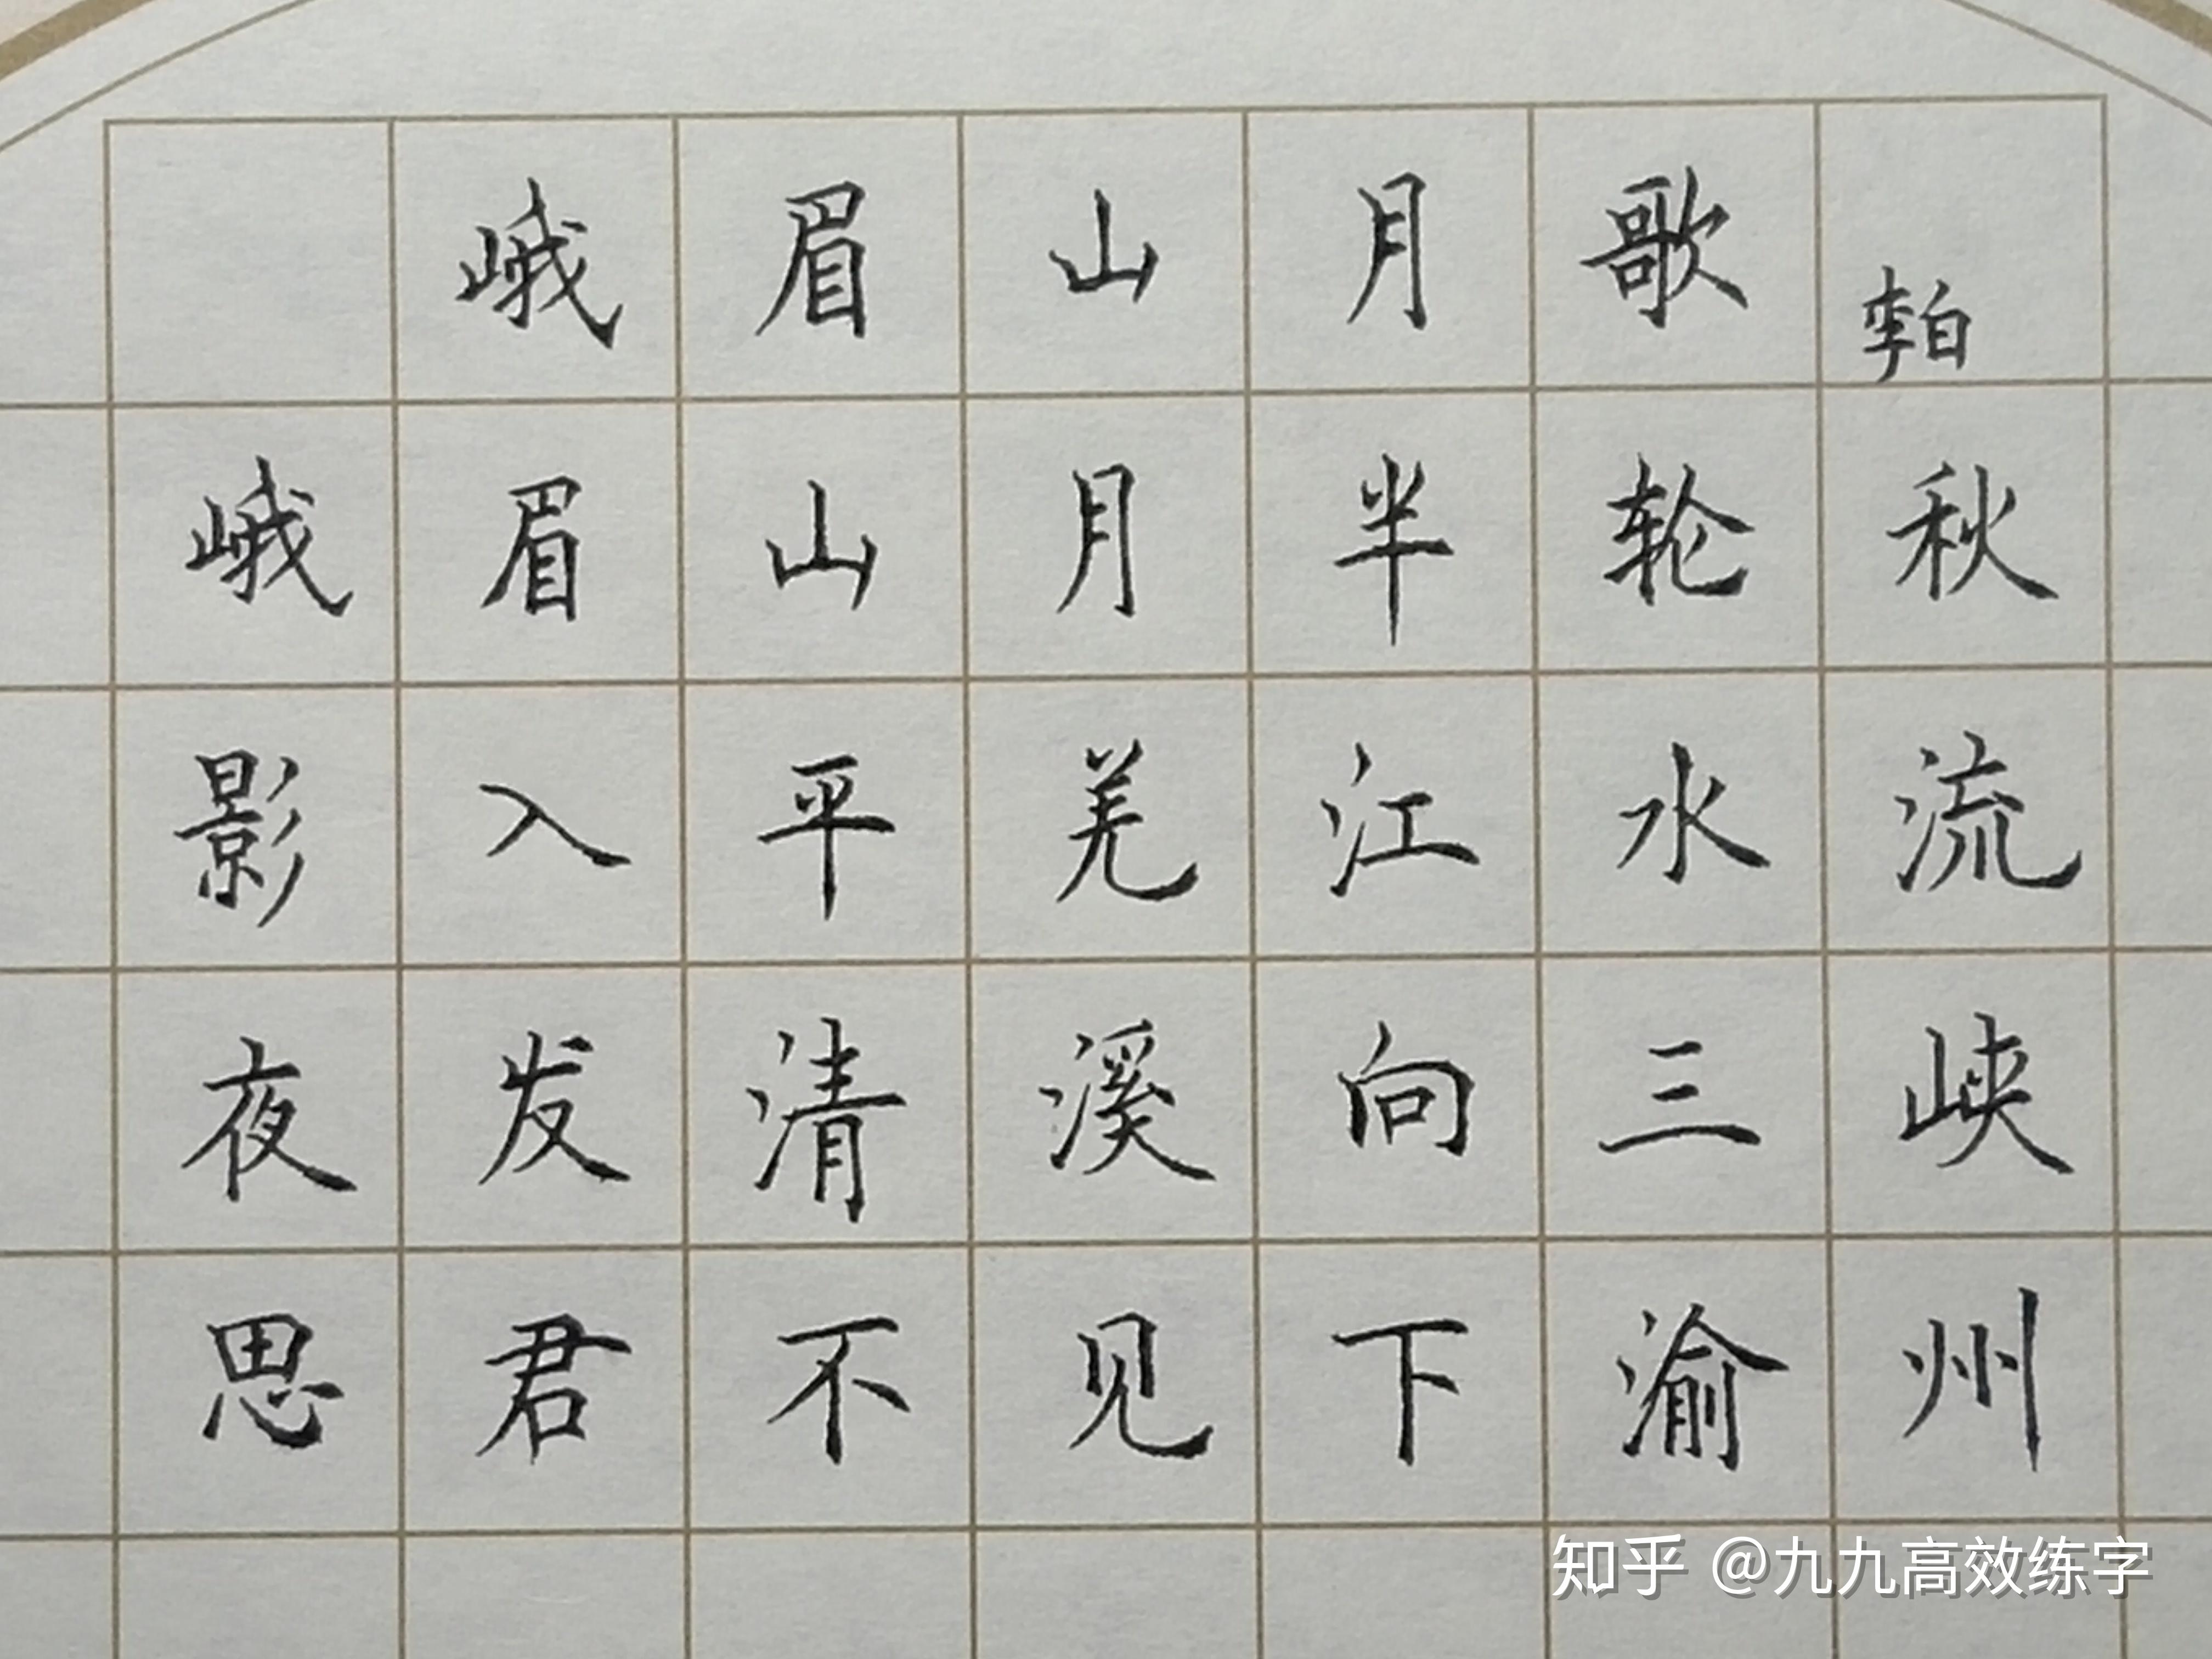 峨眉山月歌 李白
峨眉山月半轮秋
影入平羌江水流
夜发清溪向三峡
思君不见下渝州
知乎 @九九高效练字